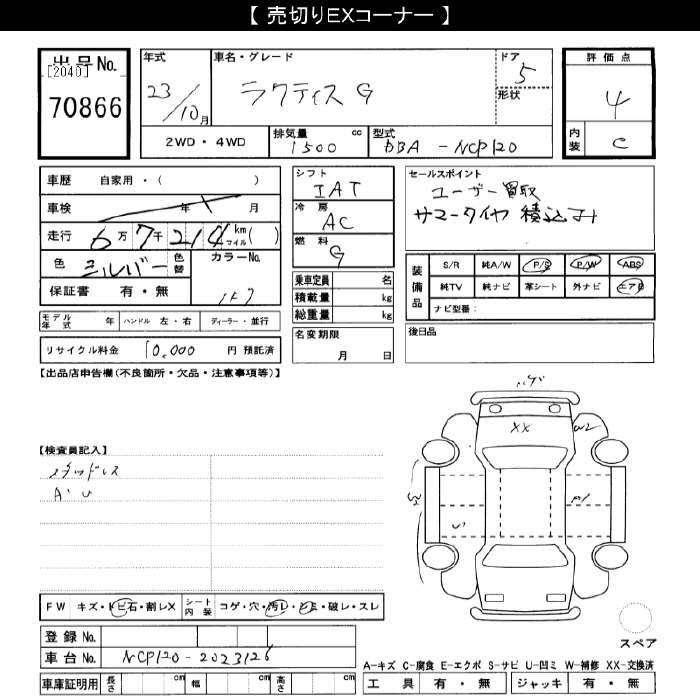 【 売切りEXコーナー 】
出品No.
[2040]
70866
年式
23/10月
車名・グレード
ラクティス G
ドア
5
形状
評価点
4
内装
C
2WD・4WD
排気量 cc
1500
型式
DBA - NCP120
車歴 自家用・( )
車検 年 月
走行 6万7千214 km マイル ( )
色 シルバー 色替
カラーNo.
1F7
保証書 有・無
シフト
IAT
冷房
AC
燃料
G
乗車定員 名
積載量 kg
総重量 kg
名変期限
月 日
セールスポイント
ユーザー買取
サマータイヤ積込み
装備品
S/R 純A/W P/S P/W ABS
純TV 純ナビ 革シート 外ナビ エアB
ナビ型番:
後日品
モデル年式 年 ハンドル 左・右 ディーラー・並行
リサイクル料金 10,000 円 預託済
【出品店申告欄(不良箇所・欠品・注意事項等)】
【検査員記入】
スタッドレス
A・U
XX
W2
FW キズ・トビ石・割レX シート内装 コゲ・穴・汚レ・シミ・破レ・スレ
登録No.
車台No. NCP120-2023126
車庫証明用 長さ cm 幅 cm 高さ cm
スペア
A-キズ C-腐食 E-エクボ S-サビ U-凹ミ W-補修 XX-交換済
工具 有・無 ジャッキ 有・無